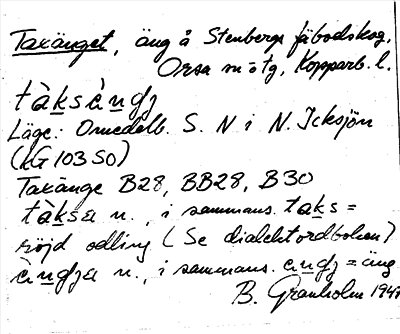 Taxänget, äng å Stenbergs fäbodskog,
Orsa s:n o tg, Kopparb. l.
tàksèngj
Läge: Omedelb. S. N i N. Icksjön
(KG 103 SO)
Taxänge B28, BB28, B30
tàksa n., i sammans. taks =
röjd odling (Se dialektordboken)
èngja n., i sammans. engj = äng
B. Granholm